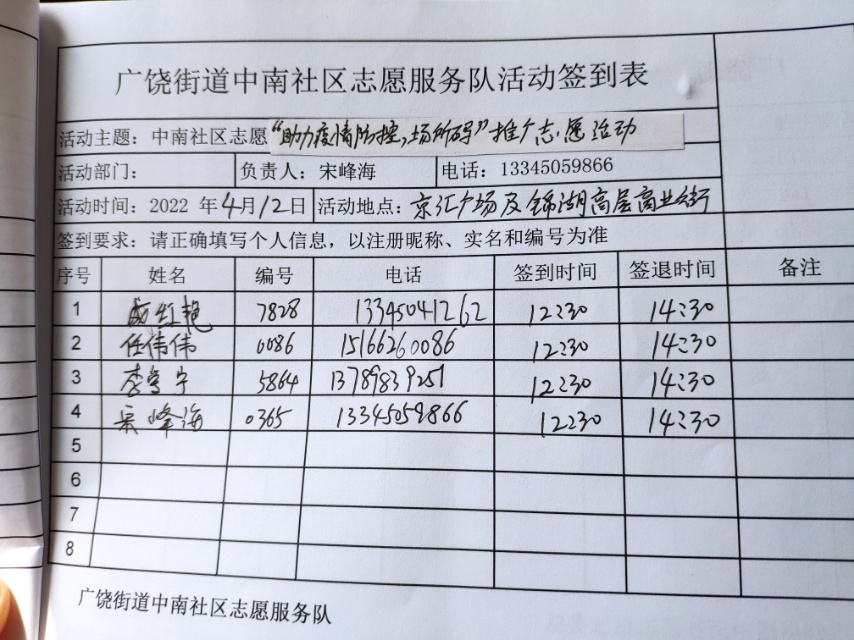 广饶街道中南社区志愿服务队活动签到表
活动主题：中南社区志愿“助力疫情防控，场所码”推广志愿活动
活动部门： 负责人：宋峰海 电话：13345059866
活动时间：2022 年4月12日 活动地点：京汇广场及锦湖高层商业街
签到要求：请正确填写个人信息，以注册昵称、实名和编号为准
序号 姓名 编号 电话 签到时间 签退时间 备注
1 红艳 7828 13345041262 12:30 14:30
2 任伟伟 0086 15166260086 12:30 14:30
3 李雪宁 5864 13789839251 12:30 14:30
4 宋峰海 0365 13345059866 12:30 14:30
5
6
7
8
广饶街道中南社区志愿服务队